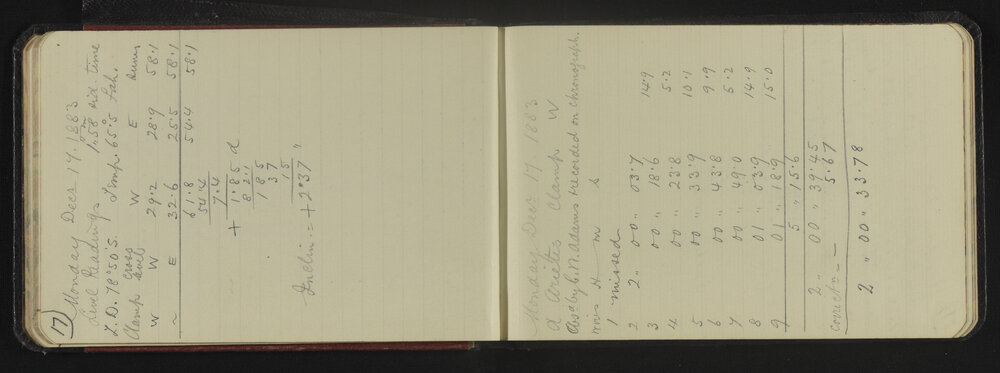 17) Monday Decr 17. 1883
Level Readings 1h 58m sid. time
Z.D. 78°50' S. Temp 65°.5 Fah.
Clamp cross level W E
W W 29.2 28.9 58.1
~ E 32.6 25.5 58.1
61.8 54.4 58.1
54.4
7.4
+ 1.85 d
185
37
15
Inclin. = + 2.37"
Monday Decr 17. 1883
α Arietis Clamp W
Obsd by C.N. Adams recorded on chronograph.
wires H m s
1 missed
2 2 " 00 " 03.7 14.9
3 00 " 18.6 5.2
4 00 " 23.8 10.1
5 00 " 33.9 9.9
6 00 " 43.8 5.2
7 00 " 49.0 14.9
8 01 " 03.9 15.0
9 01 " 18.9
5 " 15.6
2 " 00 " 39.45
correctn - 5.67
2 " 00 " 33.78